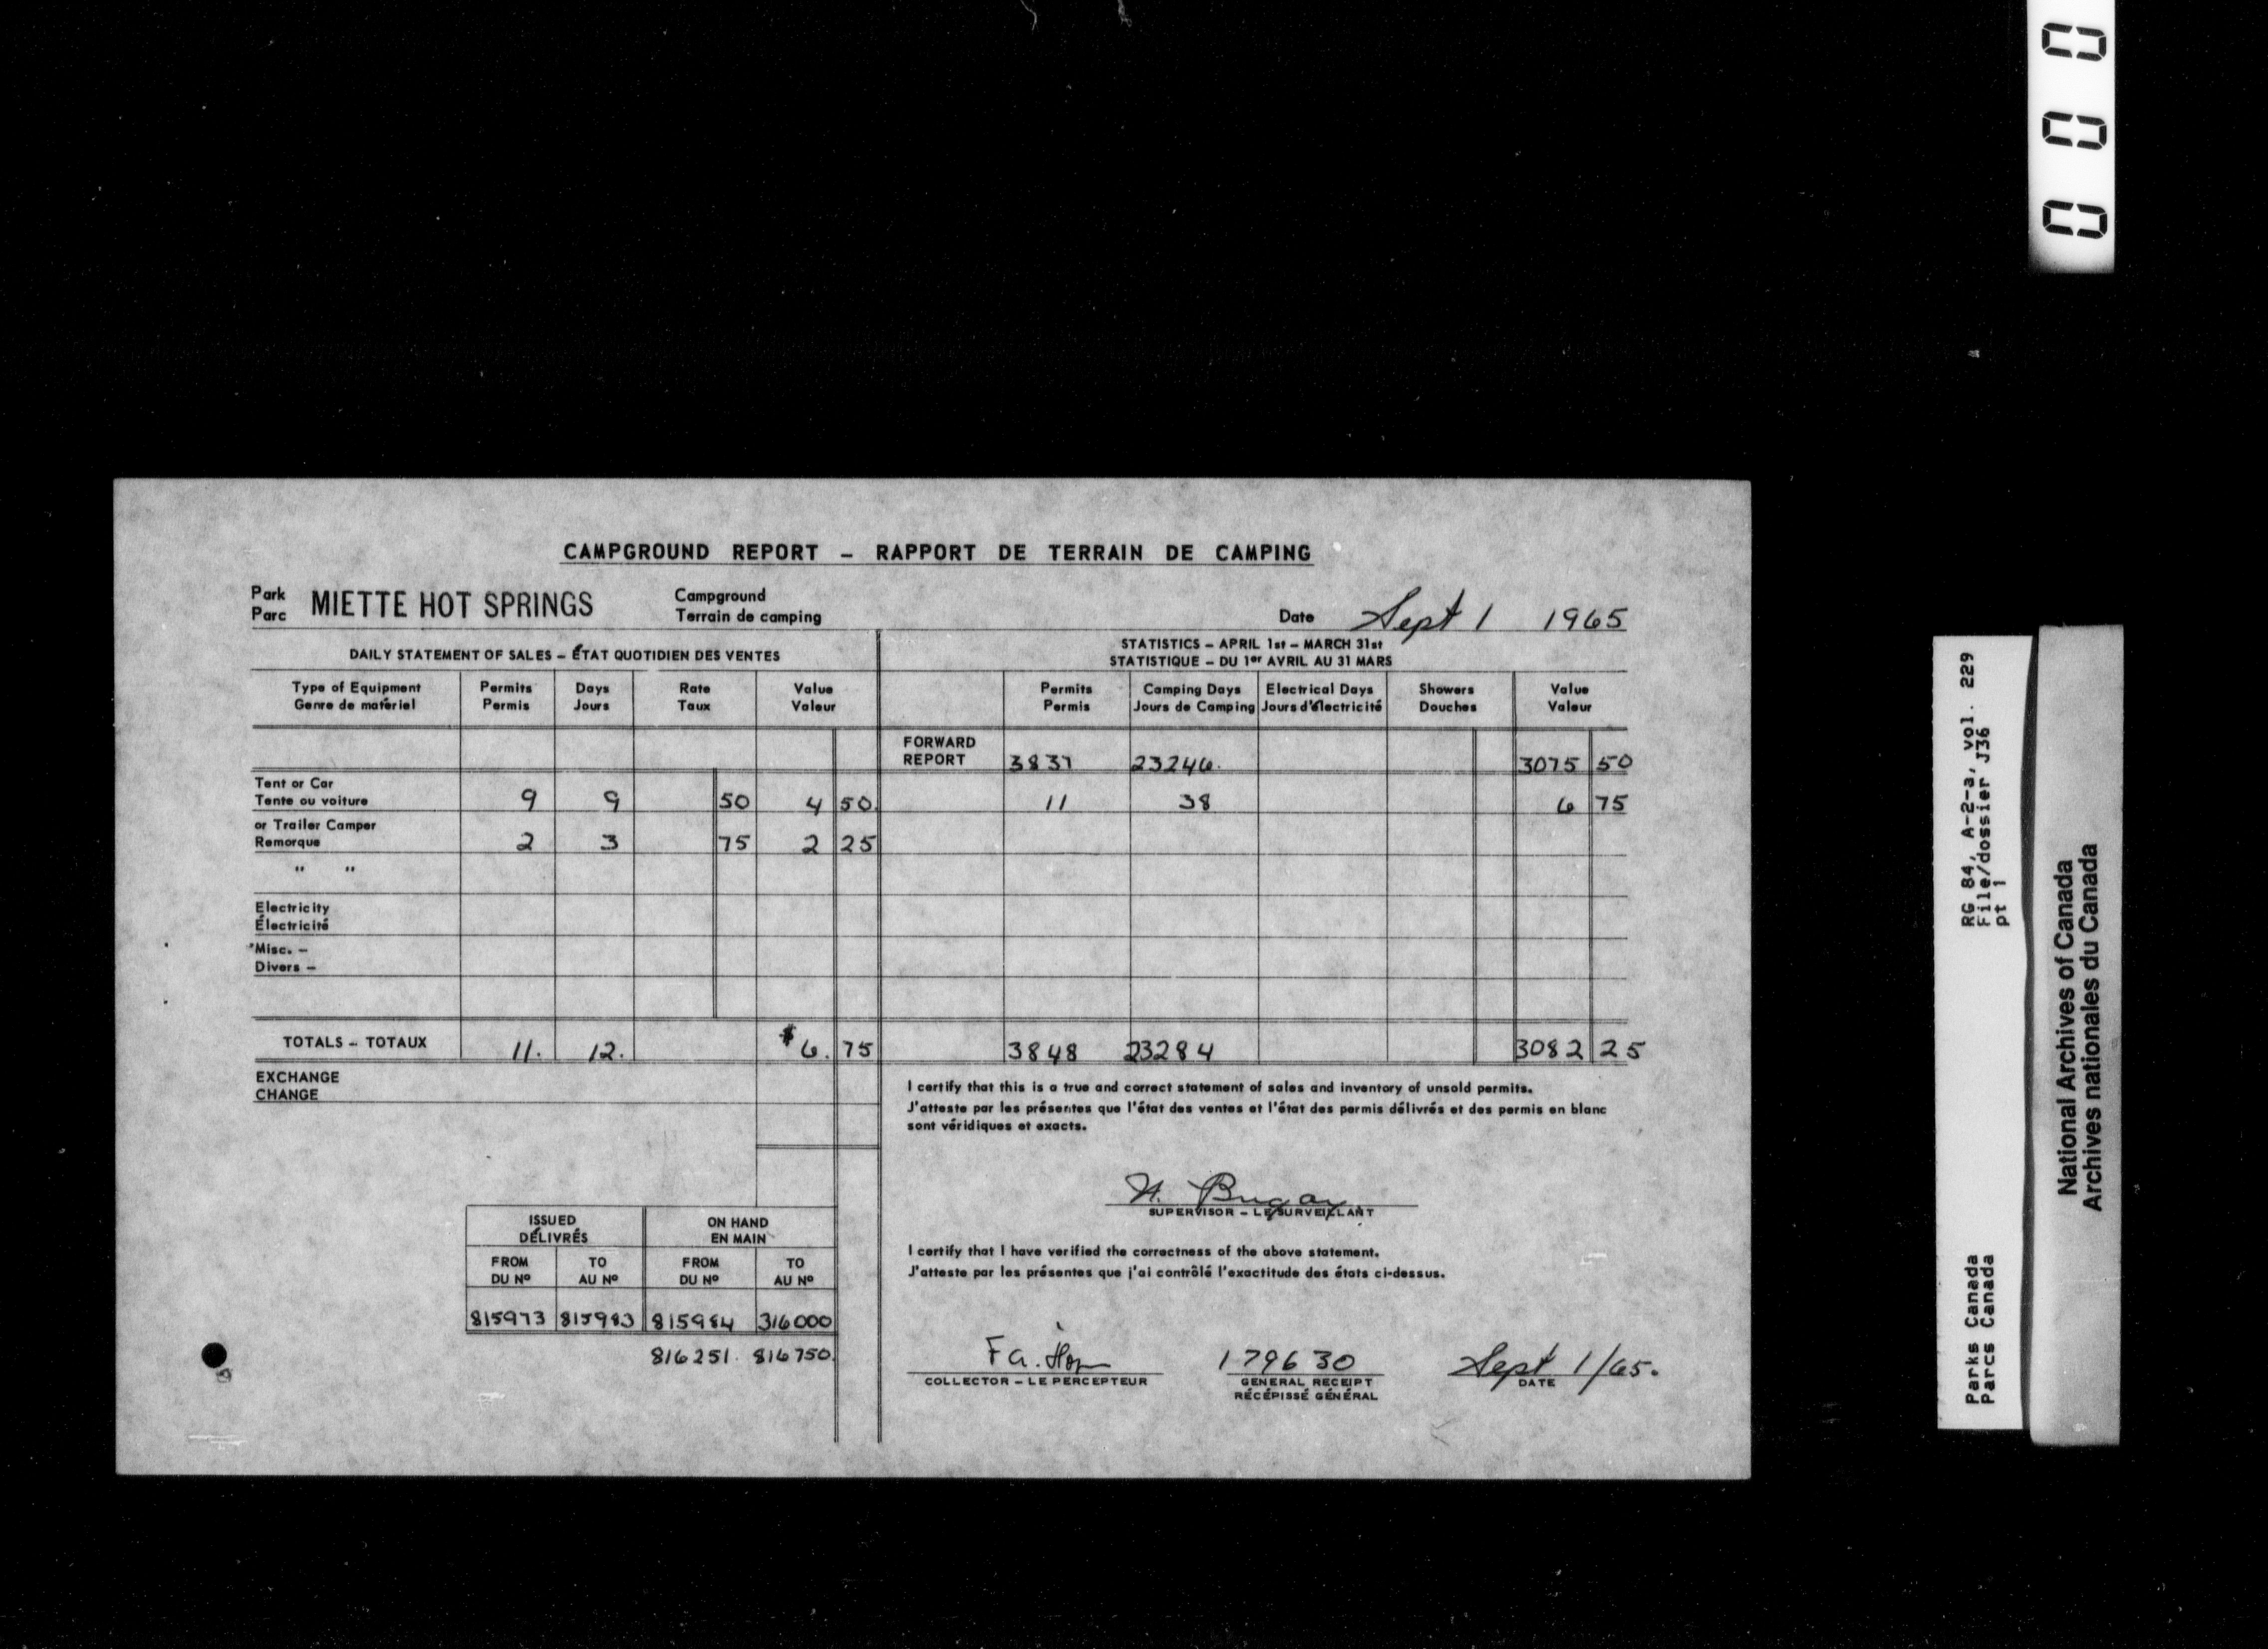 CAMPGROUND REPORT – RAPPORT DE TERRAIN DE CAMPING
Park
Parc
MIETTE HOT SPRINGS
Campground
Terrain de camping
Date Sept 1 1965
DAILY STATEMENT OF SALES – ÉTAT QUOTIDIEN DES VENTES
STATISTICS – APRIL 1st – MARCH 31st
STATISTIQUE – DU 1er AVRIL AU 31 MARS
Type of Equipment Permits Days Rate Value Permits Camping Days Electrical Days Showers Value
Genre de matériel Permis Jours Taux Valeur Permis Jours de Camping Jours d'électricité Douches Valeur
FORWARD
REPORT 3837 23246. 3075 50
Tent or Car
Tente ou voiture 9 9 50 4 50. 11 38 6 75
or Trailer Camper
Remorque 2 3 75 2 25
" "
Electricity
Électricité
*Misc. –
Divers –
TOTALS – TOTAUX 11. 12. $6. 75 3848 23284 3082 25
EXCHANGE
CHANGE
I certify that this is a true and correct statement of sales and inventory of unsold permits.
J'atteste par les présentes que l'état des ventes et l'état des permis délivrés et des permis en blanc
sont véridiques et exacts.
N. Bugay
SUPERVISOR – LE SURVEILLANT
ISSUED ON HAND
DÉLIVRÉS EN MAIN
FROM TO FROM TO
DU Nº AU Nº DU Nº AU Nº
815973 815983 815984 316000
816251. 816750.
I certify that I have verified the correctness of the above statement.
J'atteste par les présentes que j'ai contrôlé l'exactitude des états ci-dessus.
F a. 179630 Sept 1/65.
COLLECTOR – LE PERCEPTEUR GENERAL RECEIPT DATE
RÉCÉPISSÉ GÉNÉRAL
000
RG 84, A-2-a, vol. 229
File/dossier J36
pt 1
Parks Canada
Parcs Canada
National Archives of Canada
Archives nationales du Canada